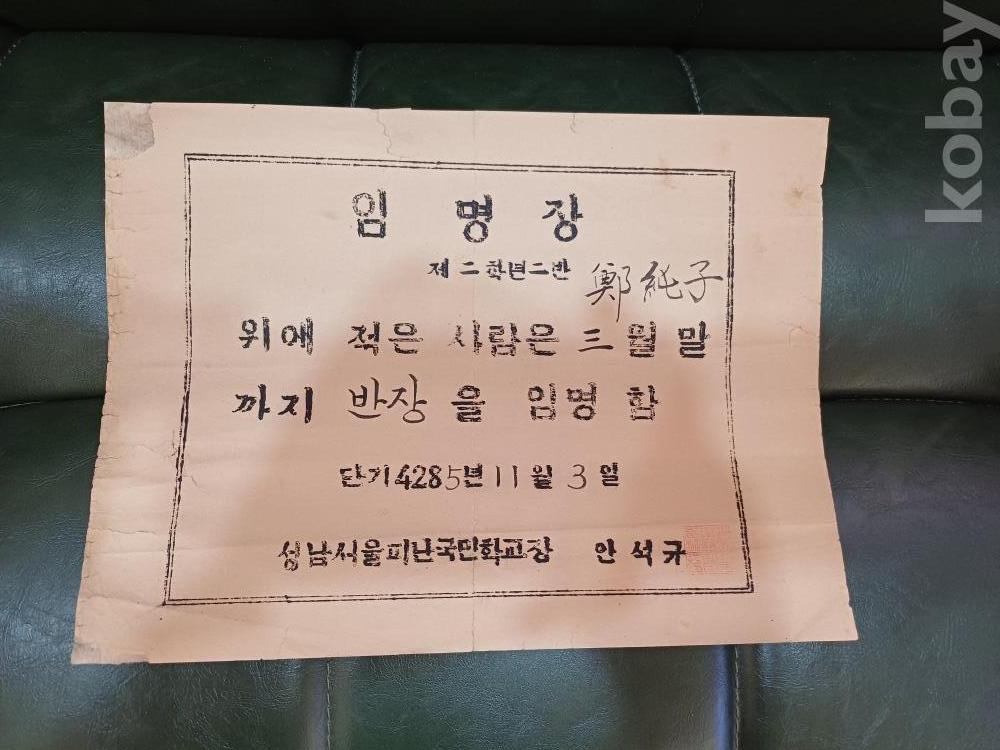 임명장
제二학년二반 鄭純子
위에 적은 사람은 三월말
까지 반장을 임명함
단기4285년 11월 3일
성남서울피난국민학교장 안석규
kobay